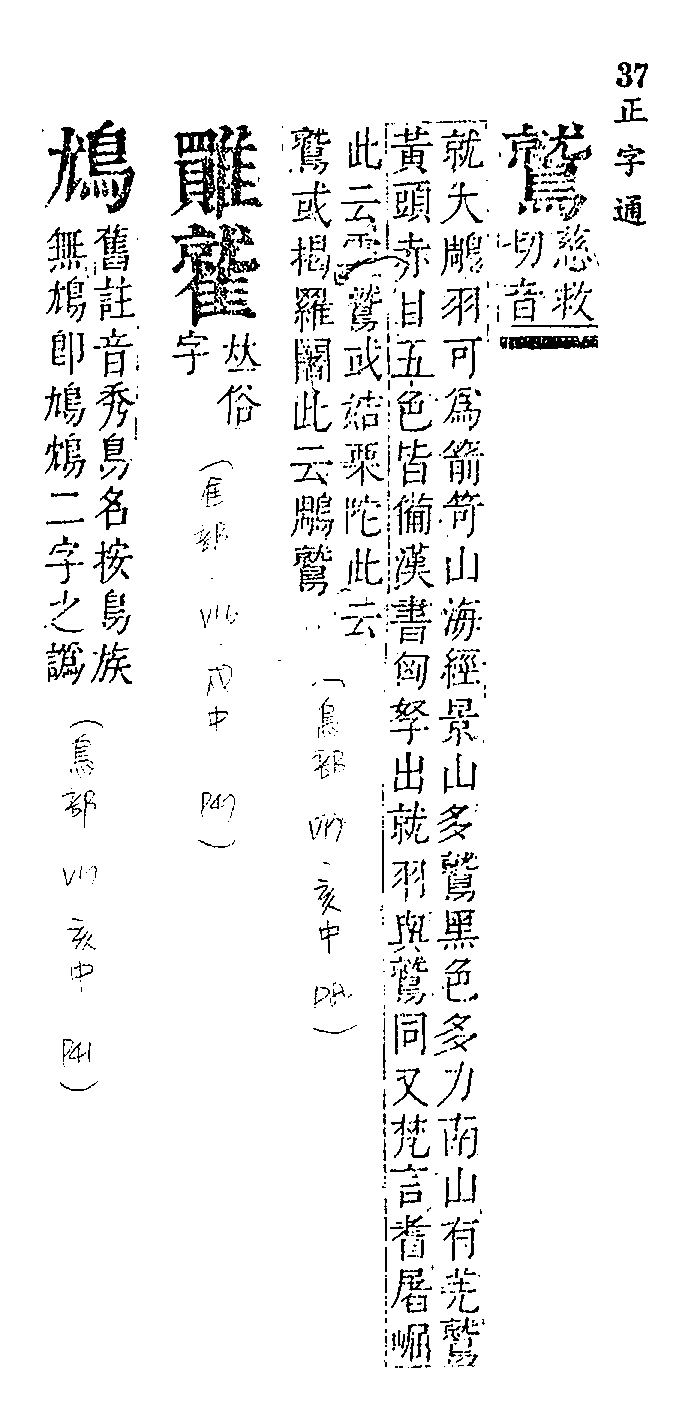 37 正字通
鷲 慈救
切音
就大鵰羽可爲箭笴山海經景山多鷲黑色多力南山有羌鷲
黃頭赤目五色皆備漢書匈孥出就羽與鷲同又梵言耆屠崛
此云靈鷲或結栗陀此云
鷲或揭羅闍此云鵰鷲
(鳥部 亥中
鷲
(隹部 戌中 P47)
丛俗
字
舊註音秀鳥名按鳥族
無鳩卽鳩鴆二字之譌
(鳥部 V17 亥中 P41)